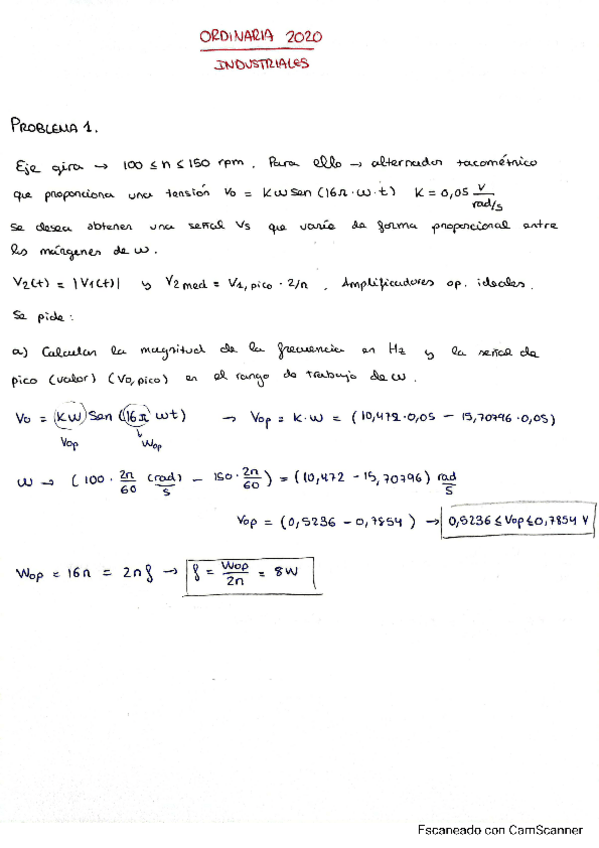 ORDINARIA 2020
INDUSTRIALES
PROBLEMA 1.
Eje gira → 100 ≤ n ≤ 150 rpm. Para ello → alternador tacométrico
que proporciona una tensión Vo = K w sen (16π · w · t) K = 0,05 V/rad/s
Se desea obtener una señal Vs que varíe de forma proporcional entre
los márgenes de w.
V2(t) = |V1(t)| y V2med = V1,pico · 2/π . Amplificadores op. ideales.
Se pide:
a) Calcular la magnitud de la frecuencia en Hz y la señal de
pico (valor) (Vo,pico) en el rango de trabajo de w.
Vo = (Kw) Sen ((16π) wt) → Vop = K·w = (10,472·0,05 - 15,70796·0,05)
Vop Wop
w → (100 · 2π/60 (rad)/s - 150 · 2π/60) = (10,472 - 15,70796) rad/s
Vop = (0,5236 - 0,7854) → 0,5236 ≤ Vop ≤ 0,7854 V
Wop = 16π = 2πf → f = Wop/2π = 8W
Escaneado con CamScanner